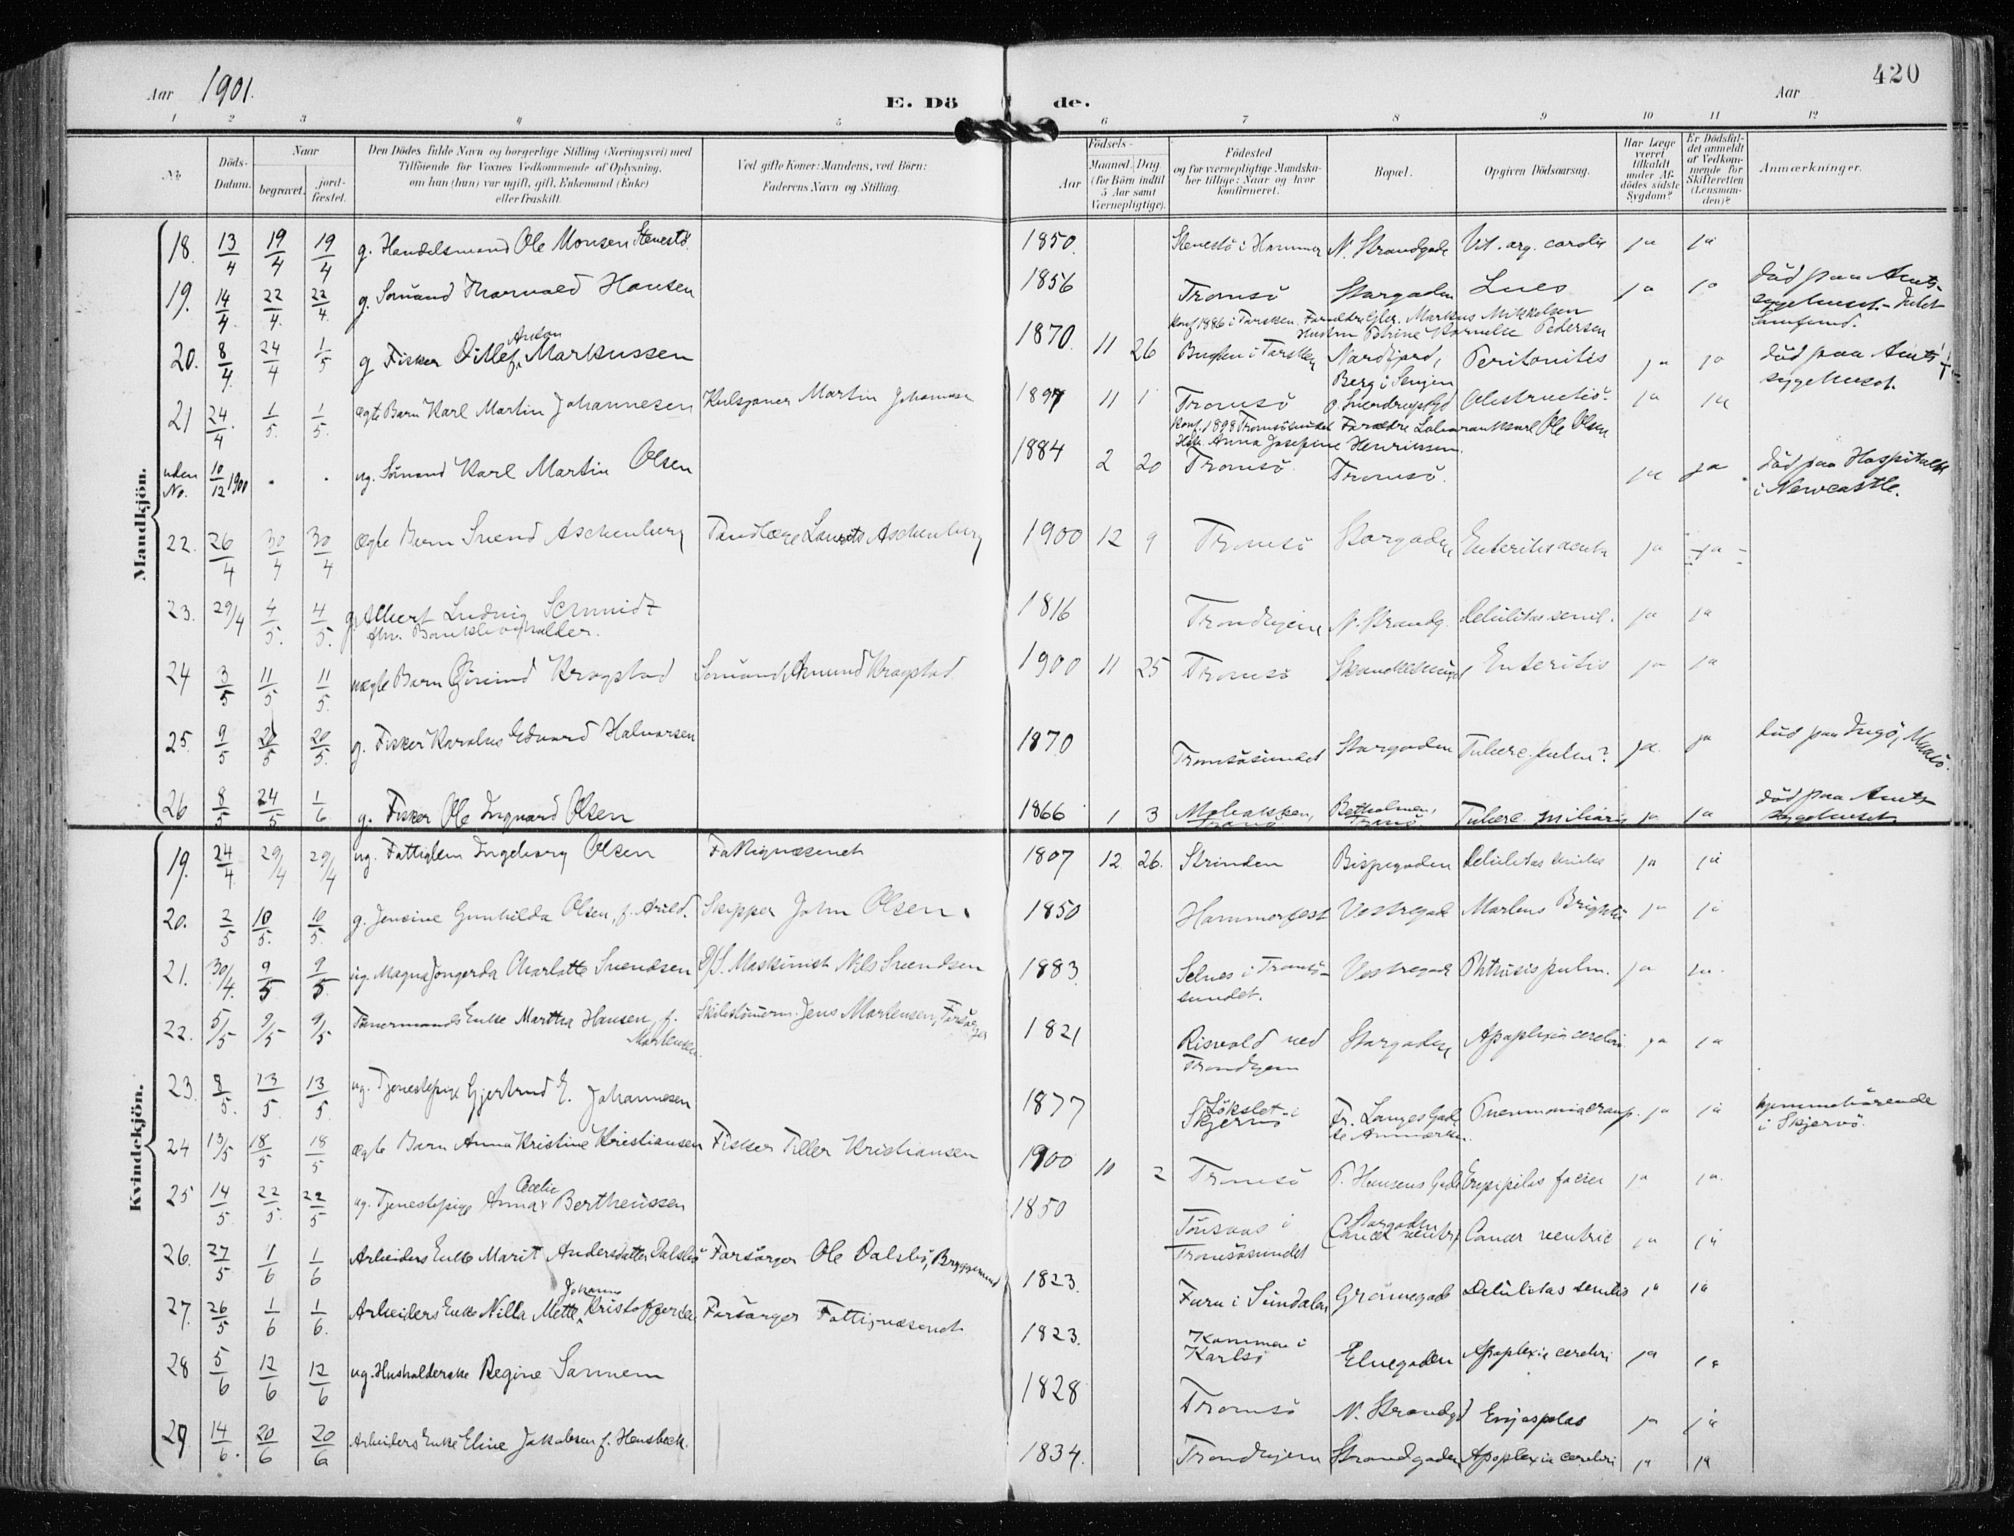 420
Aar 1901.
E. Dö de.
Aar
1 2 3 4 5 6 7 8 9 10 11 12
No.
Döds-Datum.
Naar
begravet.
jord-fæstet.
Den Dödes fulde Navn og borgerlige Stilling (Næringsvei) med
Tilföiende for Voxnes Vedkommende af Oplysning,
om han (hun) var ugift, gift, Enkemand (Enke)
eller fraskilt.
Ved gifte Koner: Mandens, ved Börn:
Faderens Navn og Stilling.
Födsels-
Aar
Maaned. Dag
(for Börn indtil
5 Aar samt
Værnepligtige).
Födested
og for værnepligtige Mandska-
ber tillige: Naar og hvor
konfirmeret.
Bopæl.
Opgiven Dödsaarsag.
Har Læge
været
tilkaldt
under Af-
dödes sidste
Sygdom?
Er Dödsfal-
det anmeldt
af Vedkom-
mende for
Skifteretten
(Lensman-
den)?
Anmærkninger.
Mandkjön.
18. 13/4 19/4 19/4 g. Handelsmand Ole Monsen Stenesö 1850. Stenesö i Hammer N. Strandgade Vit. org. cordis ja ja
19. 14/4 22/4 22/4 g. Sömand Thorvald Hansen 1856 Tromsö Storgaden Lues ja ja Död paa Amts-sygehuset.
20. 8/4 24/4 1/5 g. Fisker Ditlef Anton Markussen 1870. 11 26 Konf. 1886 i Torsken. Forældre Markus Mikkelsen Hustru Petrine Pedersen
i Torsken Nordfjord, Berg i Senjen Peritonitis ja ja Död paa Amts-sygehuset.
21 24/4 1/5 1/5 ægte Barn Karl Martin Johannesen Martin Johannesen 1897 11 1 Tromsö Obstructio ja ja
uden No. 10/12 1900 . . ug. Sömand Karl Martin Olsen 1884 2 20 Konf. 1898 Tromsösundet Forældre Ole Olsen
Anna Josefine Henriksen. Tromsö. Tromsö. ja ja Död paa Hospitalet i Newcastle.
22. 26/4 30/4 30/4 ægte Barn Svend Aschenberg Tandlæge Laurits Aschenberg 1900 12 9 Tromsö Storgaden Enteritis acuta ja ja
23. 29/4 4/5. 4/5. g. Albert Ludvig Schmidt fhv. Bankbogholder. 1816 Trondhjem N. Strandg. Debilitas senil. ja ja
24 3/5 11/5 11/5. uægte Barn Öivind Krogstad Sömand Amund Krogstad. 1900 11 25 Tromsö Enteritis ja ja
25. 9/5 20/5 20/5. g. Fisker Karolus Edvard Halvorsen 1870 Tromsösundet Storgaden Tuberc. pulm? ja. ja Död paa Ingö, Maasö.
26 8/5 24/5 1/6 g. Fisker Ole Ingvard Olsen 1866 1 3 Tranö Tranö Tuberc. miliaris ja ja Död paa Amts-sygehuset
Kvindekjön.
19. 24/4 29/4 29/4 ug. Fattiglem Ingeborg Olsen Fattigvæsenet 1807 12 26. Strinden Bispegaden Debilitas senilis ja ja
20. 2/5 10/5. 10/5. g. Jensine Gunhilda Olsen, f. Arild. Skipper John Olsen. 1850 Hammerfest Vestregade Morbus Brightii ja ja
21. 30/4. 9/5 9/5. ug. Magna Jongerda Charlotte Svendsen D/S. Maskinist Nils Svendsen 1883 Selnes i Tromsö-sundet. Vestregade Phtisis pulm. ja ja
22. 5/5 9/5 9/5 Enke Martha Hansen f. Mortensen. Jens Mortensen, Forsörger 1821 Risvold ved Trondhjem Storgaden Apoplexia cerebri ja ja
23. 8/5. 13/5. 13/5. ug. Tjenestepige Gjertrud E. Johannesen 1877 Lökslet i Skjervö Fr. Langes Gade Pneumonia croup. ja ja hjemmehörende i Skjervö.
24 13/5 18/5 18/5 ægte Barn Anna Kristine Kristiansen Fisker Tiller Kristiansen 1900 10 2 Tromsö P. Hansens Gade Erysipelas faciei ja ja.
25 14/5. 22/5. 22/5 ug. Tjenestepige Anna Cecilie Bertheussen 1850 Tönsaas i Tromsösundet Storgaden (Cancer ventri) Cancer ventric ja ja
26. 27/5 1/6 1/6 Arbeiders Enke Marit Andersdatter Dalsbö Forsörger Ole Dalsbö, Bryggemand 1823. Furu i Sundalen Grönnegade Debilitas senilis ja ja
27. 26/5 1/6 1/6. Arbeiders Enke Nilla Mette Johanna Kristoffersen Forsörger Fattigvæsenet 1823. i Karlsö Elvegaden Apoplexia cerebri ja ja
28 5/6 12/6 12/6 ug. Husholderske Regine Sannem 1828 Tromsö N. Strandgd Erysipelas ja ja
29 14/6. 20/6 20/6 Arbeiders Enke Eline Jakobsen f. Hensbeck. 1834. Trondhjem Strandgaden Apoplexia cerebri ja ja